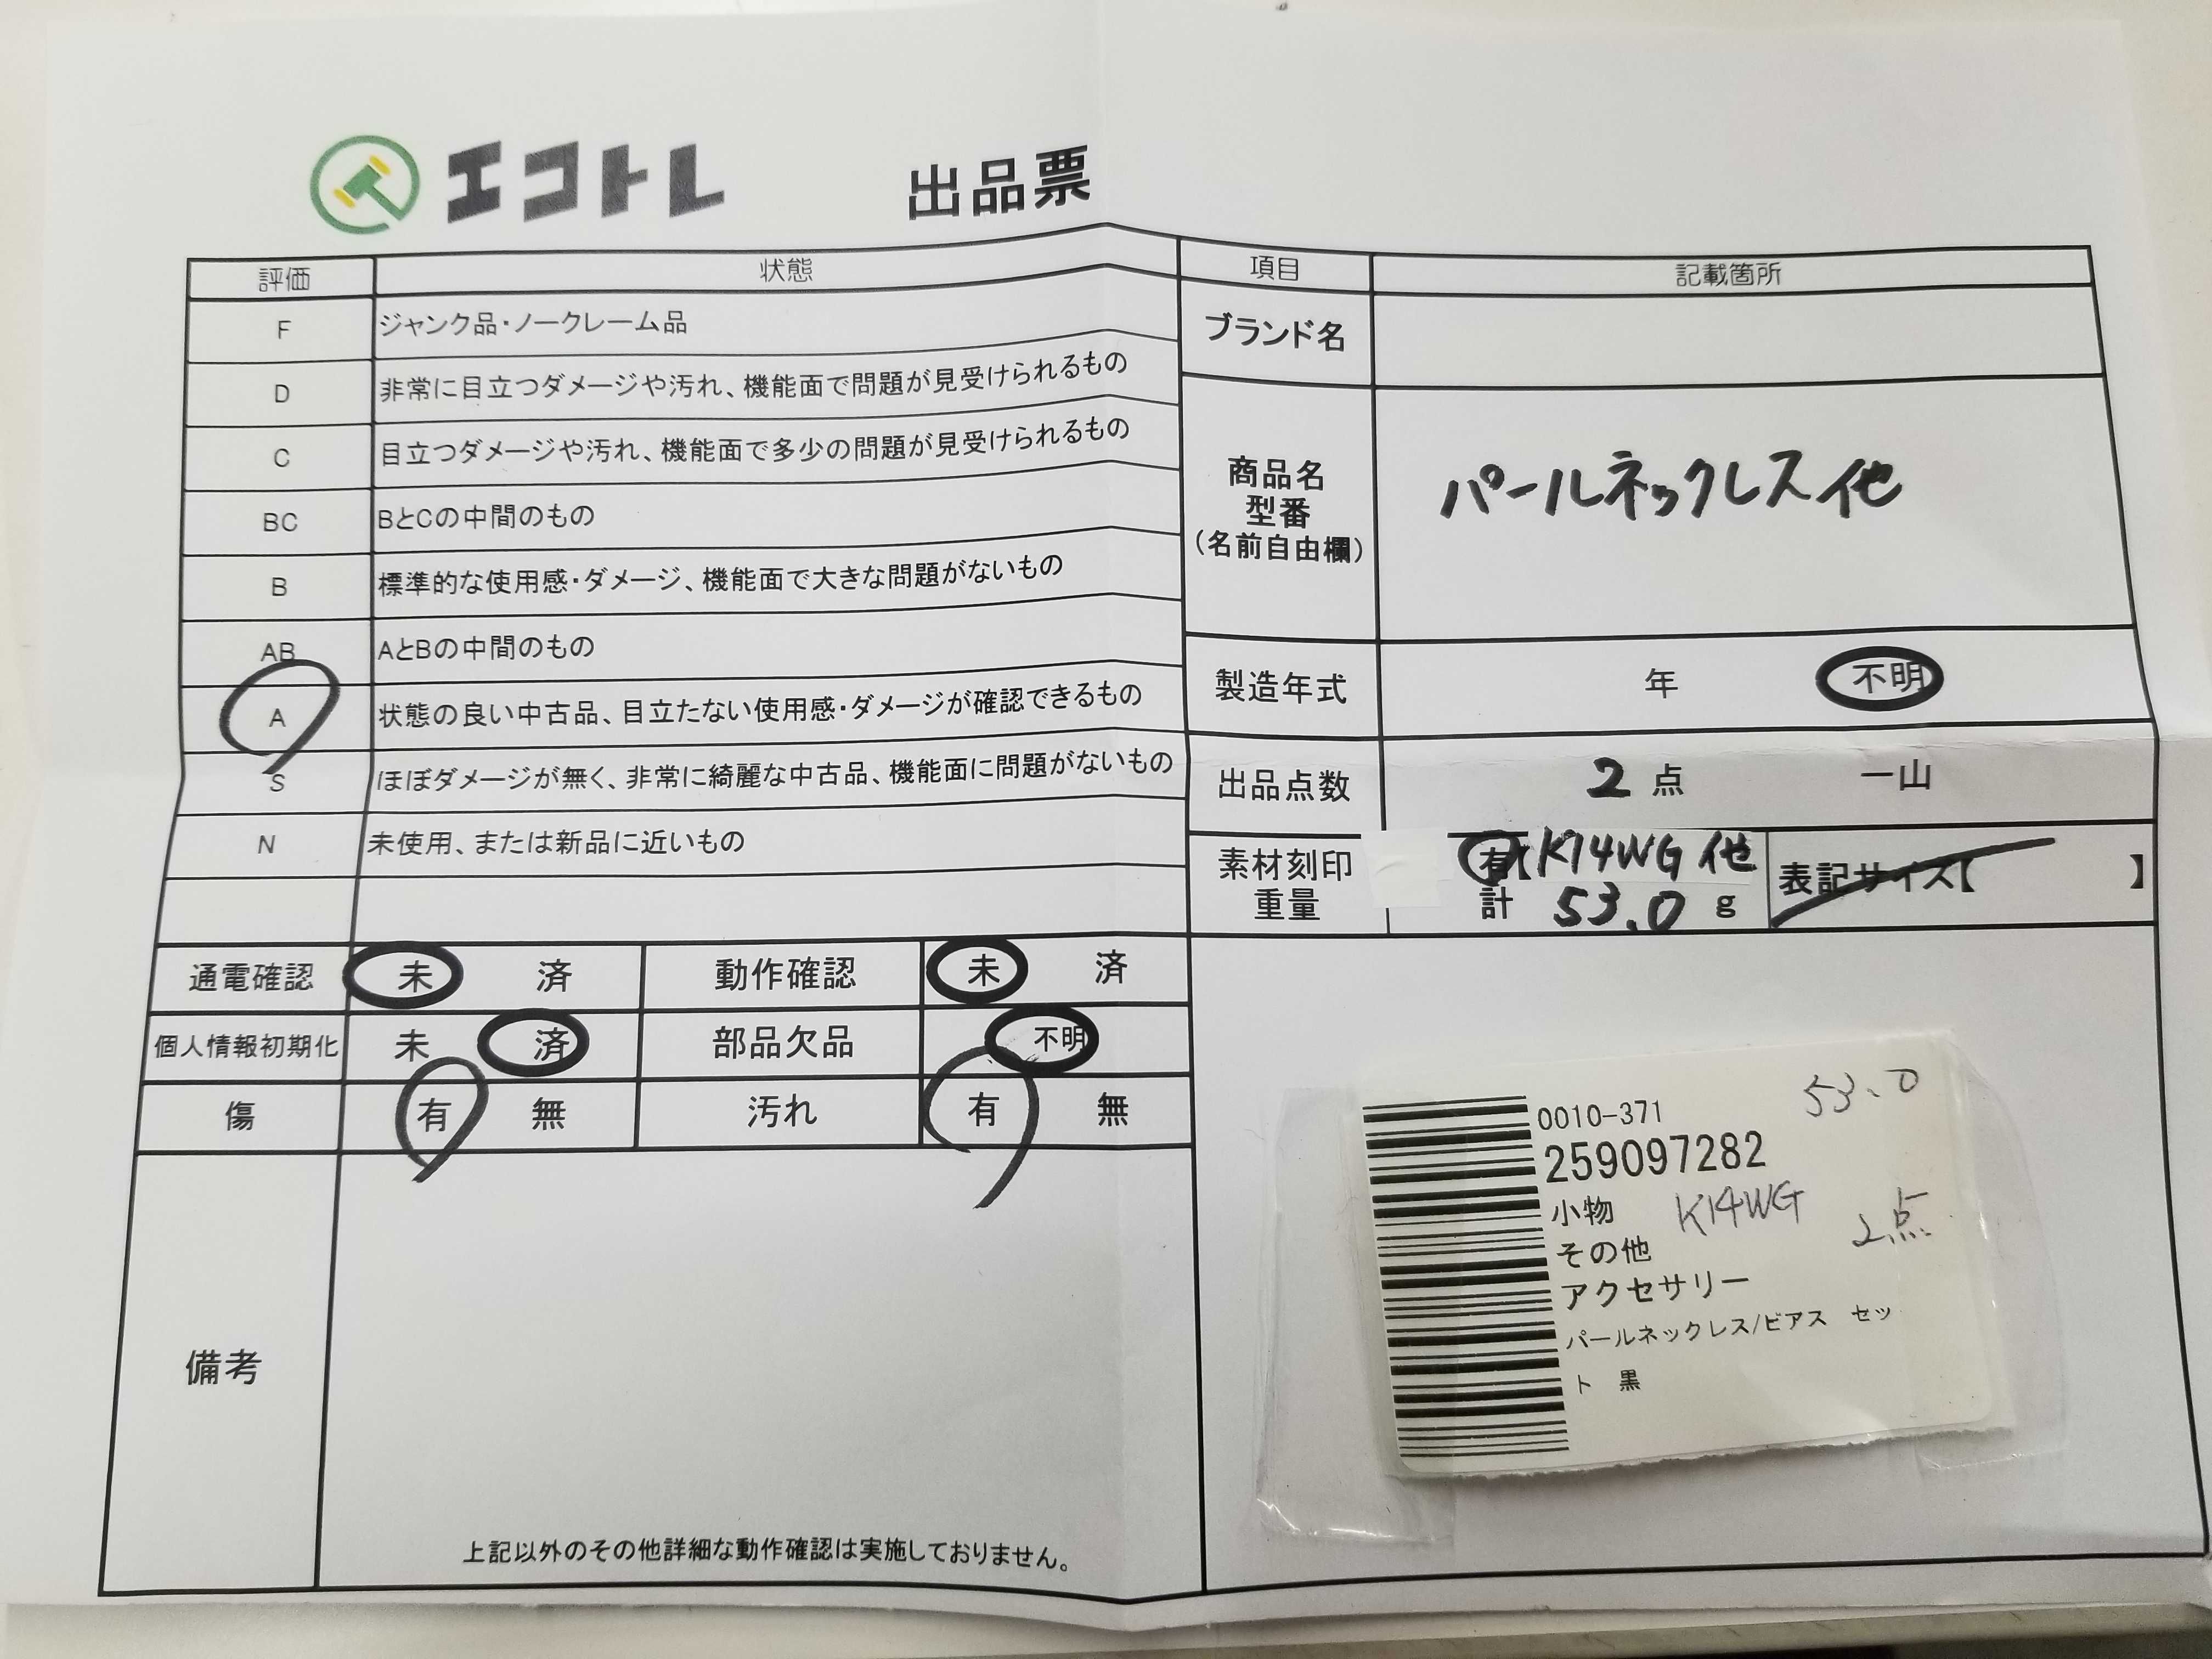 エコトレ 出品票
評価 状態
F ジャンク品・ノークレーム品
D 非常に目立つダメージや汚れ、機能面で問題が見受けられるもの
C 目立つダメージや汚れ、機能面で多少の問題が見受けられるもの
BC BとCの中間のもの
B 標準的な使用感・ダメージ、機能面で大きな問題がないもの
AB AとBの中間のもの
A 状態の良い中古品、目立たない使用感・ダメージが確認できるもの
S ほぼダメージが無く、非常に綺麗な中古品、機能面に問題がないもの
N 未使用、または新品に近いもの
通電確認 未 済 動作確認 未 済
個人情報初期化 未 済 部品欠品 不明
傷 有 無 汚れ 有 無
備考
上記以外のその他詳細な動作確認は実施しておりません。
項目 記載箇所
ブランド名
商品名
型番
(名前自由欄)
パールネックレス他
製造年式 年 不明
出品点数 2 点 一山
素材刻印 有【K14WG 他
重量 計 53.0 g
表記サイズ【 】
0010-371 53.0
259097282
小物 K14WG 2点
その他
アクセサリー
パールネックレス/ピアス セッ
ト 黒